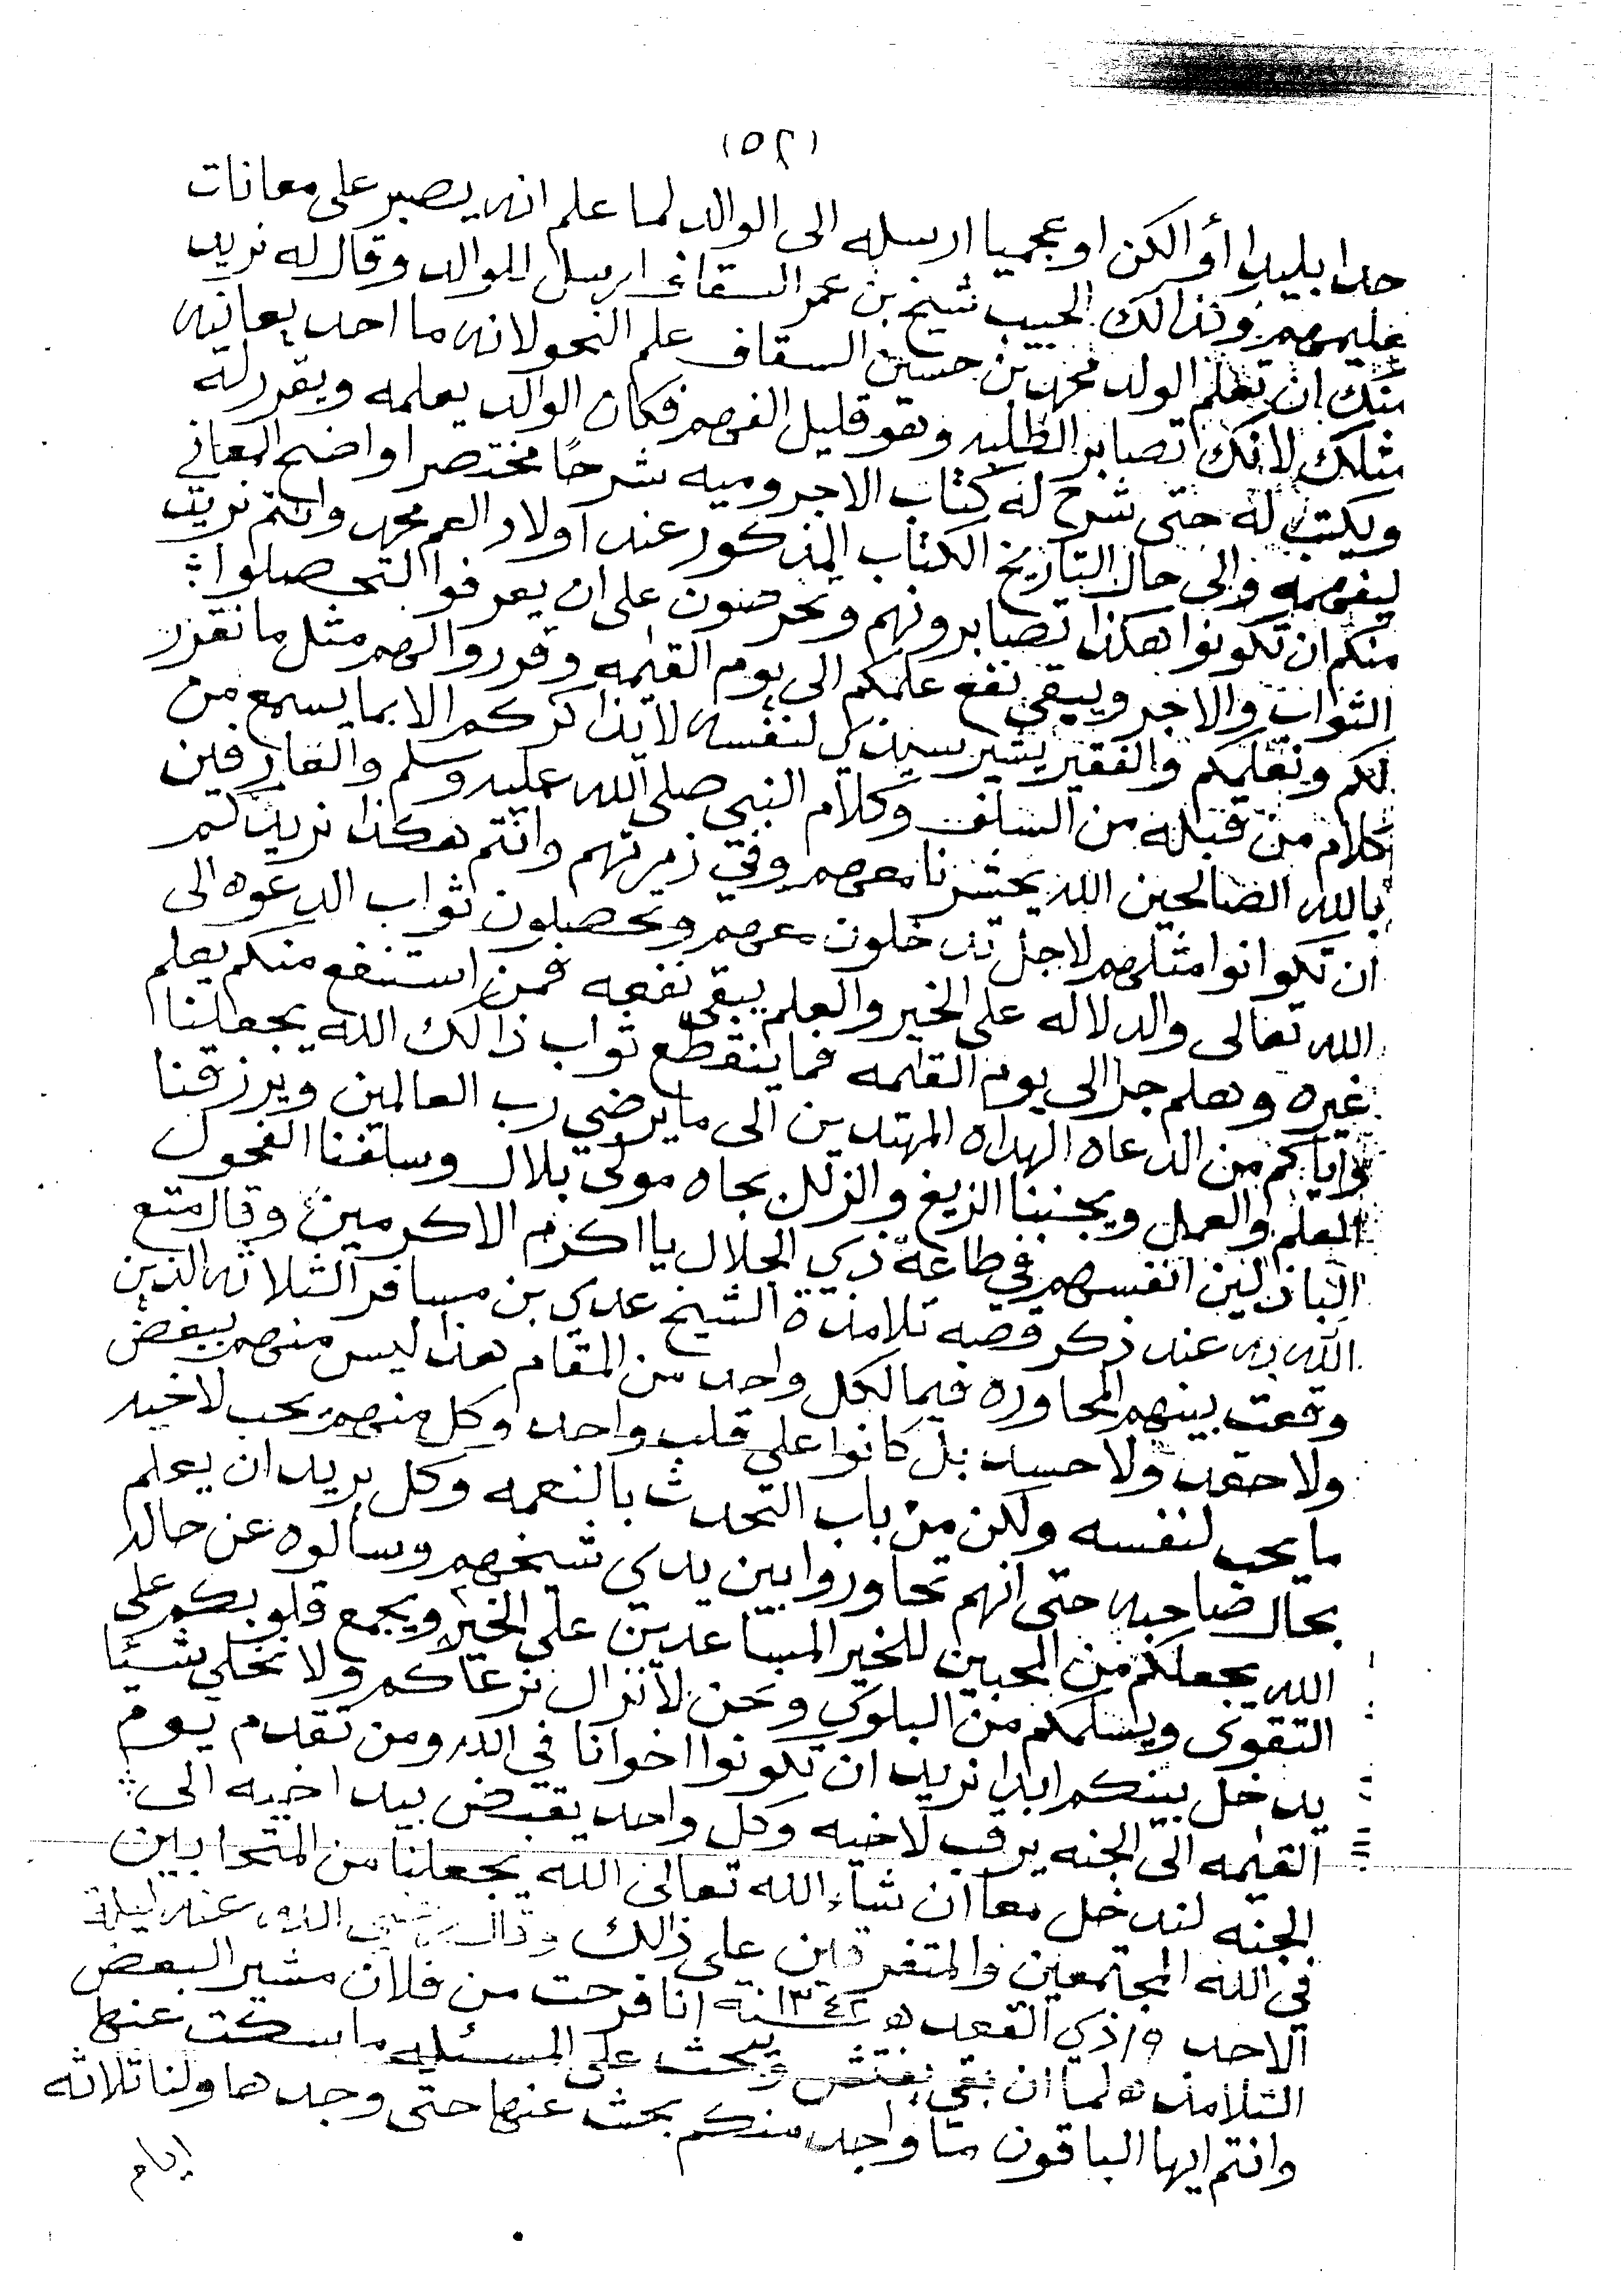 (٥٢)
حدا بليدا أو الكن او عجميا ارسله الى الوالد لما علم انه يصبر على معانات
عليهم وكذالك الحبيب شيخ بن عمر السقاف ارسل للوالد وقال له نريد
منك ان تعلم الولد محمد بن حسين السقاف علم النحو لانه ما احد يعانيه
مثلك لانك تصابر الطلبه وهو قليل الفهم فكان الوالد يعلمه ويقرر له
ويكتب له حتى شرح له كتاب الاجروميه شرحًا مختصرا واضح المعاني
ليفهمه والى حال التاريخ الكتاب المذكور عند اولاد العم محمد وانتم نريد
منكم ان تكونوا هكذا تصابرونهم وتحرصون على ان يعرفوا التحصلوا
الثواب والاجر ويبقى نفع علمكم الى يوم القيمه وقرروا لهم مثل ما نقرر
لكم ونعلمكم والفقير يشير سيدي لنفسه لا يذاكركم الا بما يسمع من
كلام من قبله من السلف وكلام النبي صلى الله عليه وسلم والعارفين
بالله الصالحين الله يحشرنا معهم وفي زمرتهم وانتم هكذا نريدكم
ان تكوانوا مثلهم لاجل تدخلون معهم وتحصلون ثواب الدعوه الى
الله تعالى والدلاله على الخير والعلم يبقى نفعه فمن استنفع منكم يعلم
غيره وهلم جرا الى يوم القيمه فما ينقطع ثواب ذالك الله يجعلنا
واياكم من الدعاه الهداه المهتدين الى ما يرضي رب العالمين ويرزقنا
العلم والعمل ويجنبنا الزيغ والزلل بجاه مولى بلال وسلفنا الفحول
الباذلين انفسهم في طاعة ذي الجلال يا اكرم الاكرمين وقال متع
الله به عند ذكر قصه تلامذة الشيخ عدي بن مسافر الثلاثه الذين
وقعت بينهم المحاوره فيما لكل واحد من المقام هذا ليس منهم ببغض
ولا حقد ولا حسد بل كانوا على قلب واحد وكل منهم يحب لاخيه
ما يحب لنفسه ولكن من باب التحدث بالنعمه وكل يريد ان يعلم
بحال صاحبه حتى انهم تحاوروا بين يدي شيخهم وسألوه عن حاله
الله يجعلكم من المحبين للخير المساعدين على الخير ويجمع قلوبكم على
التقوى ويسلمكم من البلوى ونحن لا نزال نرعاكم ولا نخلي شيئا
يدخل بينكم ابدا نريد ان تكونوا اخوانا في الله ومن تقدم يوم
القيمه الى الجنه يرقب لاخيه وكل واحد يقبض بيد اخيه الى
الجنه لندخل معا ان شاء الله تعالى الله يجعلنا من المتحابين
في الله المجتمعين والمتفرقين على ذالك وقال رضي الله عنه ليلة
الاحد ٩/ ذي القعده سنة ١٣٤٢ انا فرحت من فلان مشير البعض
التلامذه لما ان بقي يفتش ويبحث على المسئله ما سكت عنها
وانتم ايها الباقون ما واحد منكم بحث عنها حتى وجدها ولنا ثلاثه
ايام